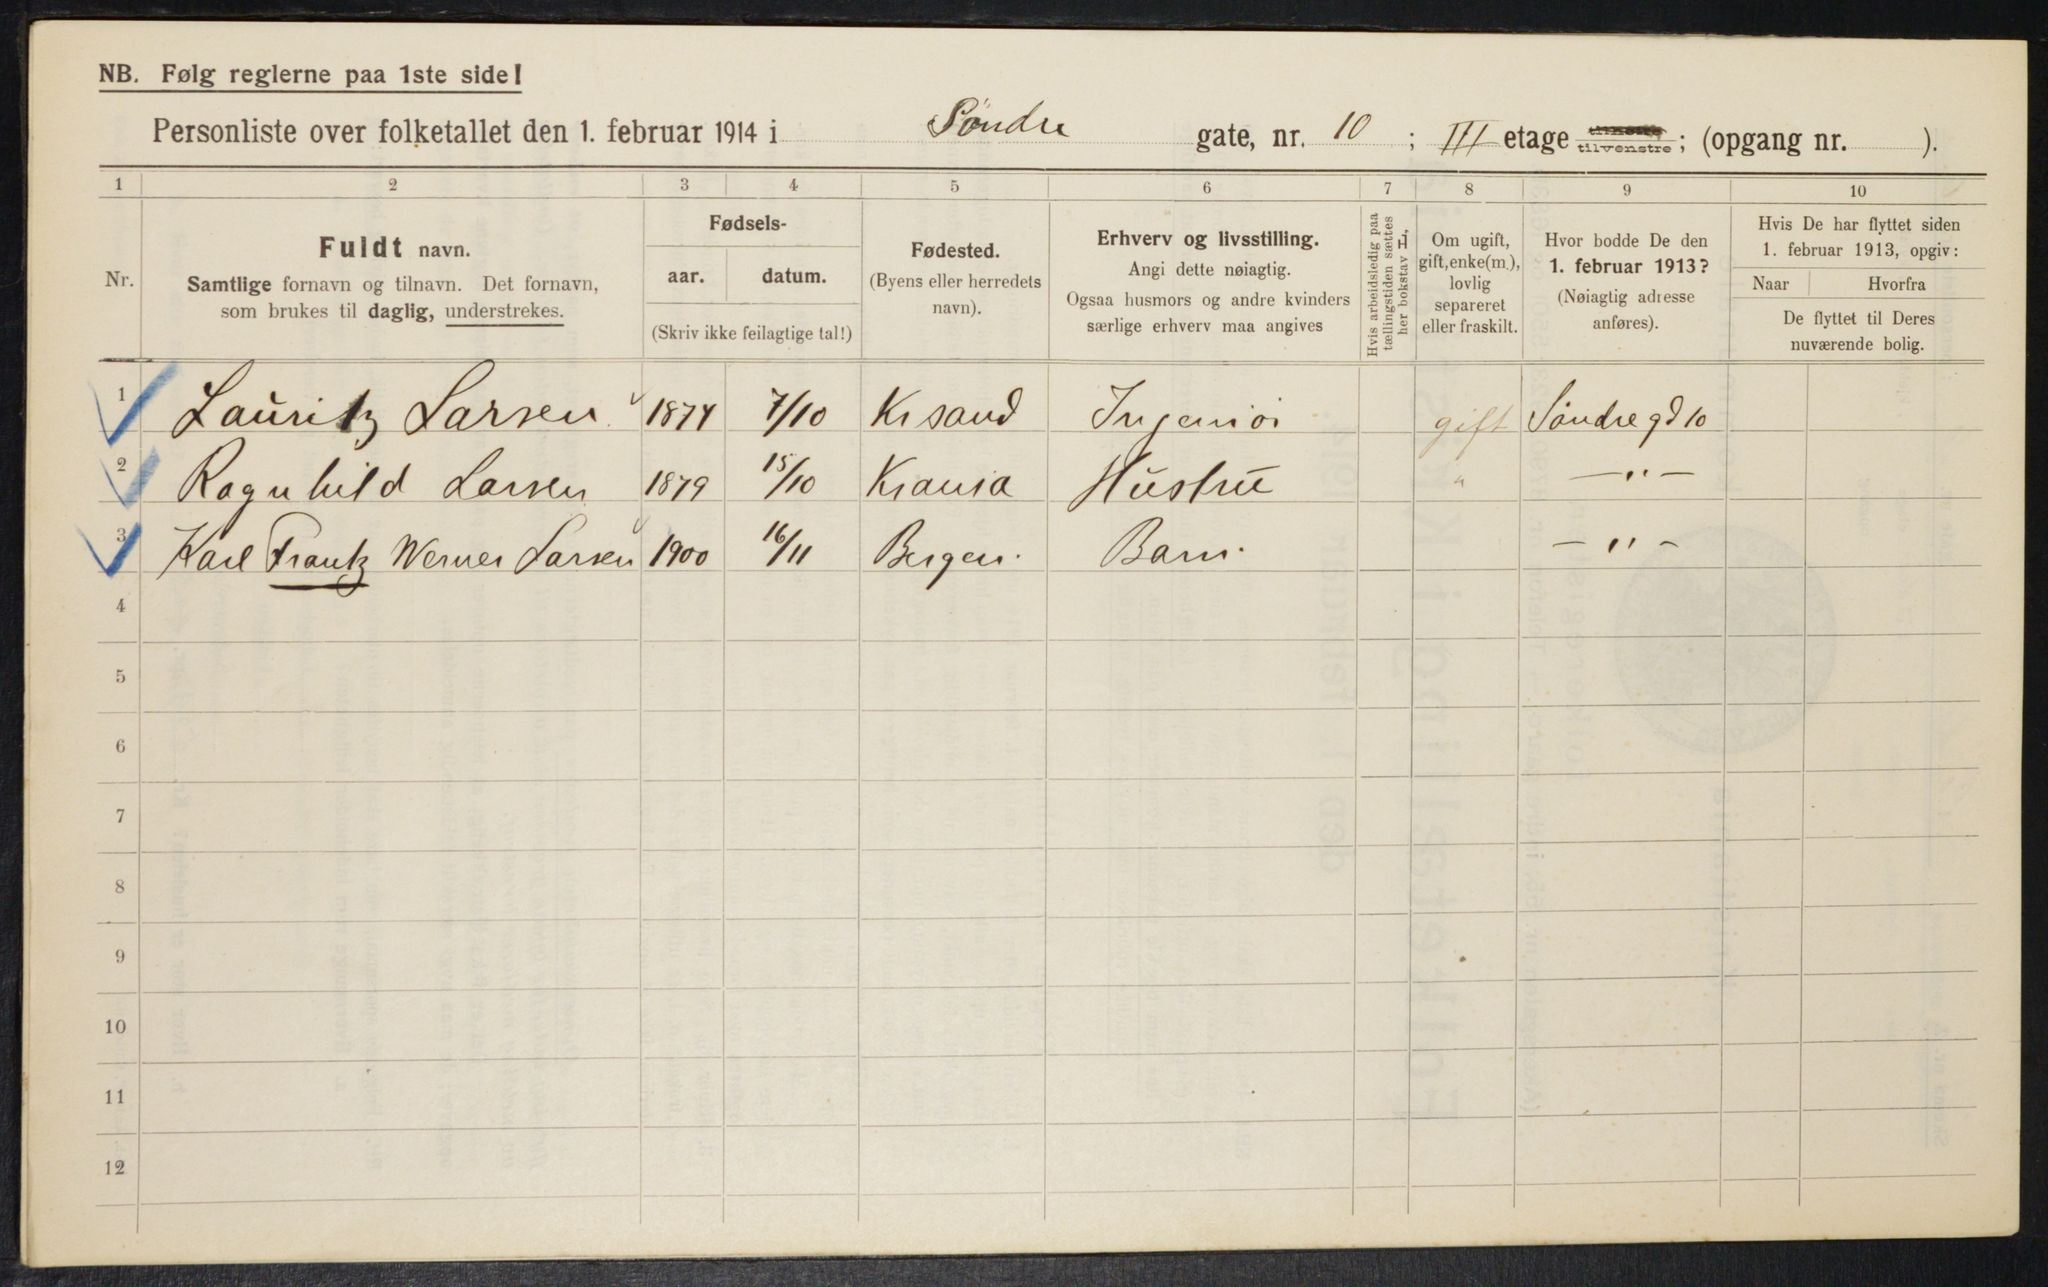 NB. Følg reglerne paa 1ste side!
Personliste over folketallet den 1. februar 1914 i Søndre gate, nr. 10 ; III etage tilhøire tilvenstre; (opgang nr. ).
1 2 3 4 5 6 7 8 9 10
Nr.
Fuldt navn.
Samtlige fornavn og tilnavn. Det fornavn,
som brukes til daglig, understrekes.
Fødsels-
aar. datum.
(Skriv ikke feilagtige tal!)
Fødested.
(Byens eller herredets
navn).
Erhverv og livsstilling.
Angi dette nøiagtig.
Ogsaa husmors og andre kvinders
særlige erhverv maa angives
Hvis arbeidsledig paa
tællingstiden sættes
her bokstav L.
Om ugift,
gift, enke(m.),
lovlig
separeret
eller fraskilt.
Hvor bodde De den
1. februar 1913?
(Nøiagtig adresse
anføres).
Hvis De har flyttet siden
1. februar 1913, opgiv:
Naar Hvorfra
De flyttet til Deres
nuværende bolig.
1 Lauritz Larsen 1874 7/10 Krsand Ingeniør gift Søndre gd 10
2 Ragnhild Larsen 1879 15/10 Krania Hustru " — " —
3 Karl Frantz Werner Larsen 1900 16/11 Bergen. Barn. — " —
4
5
6
7
8
9
10
11
12